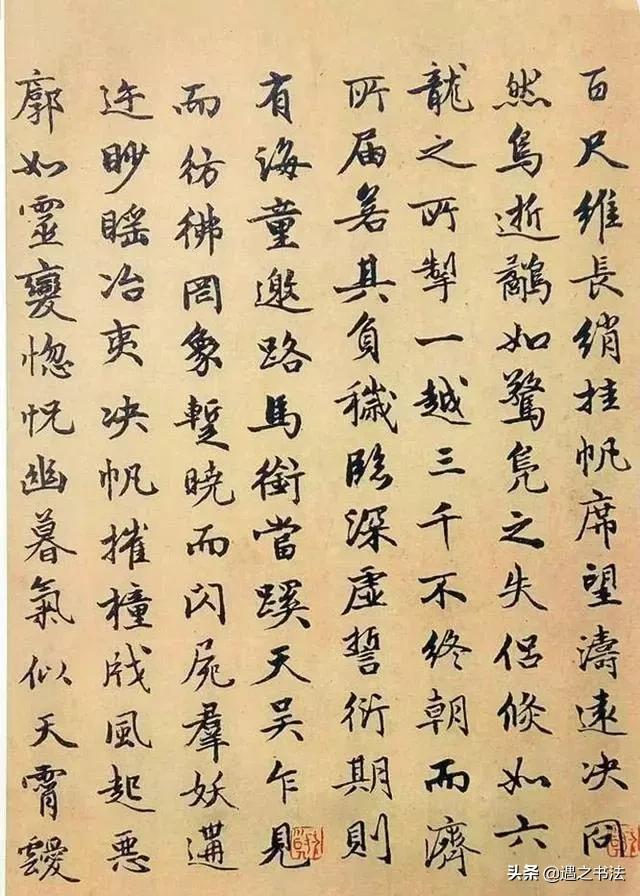 百尺維長綃挂帆席望濤遠决冏
然鳥逝鷸如驚鳧之失侣倐如六
龍之所掣一越三千不終朝而濟
所届若其負穢臨深虛誓衍期則
有海童邀路馬銜當蹊天吴乍見
而彷彿罔象蹔曉而閃屍羣妖遘
迕眇䁘冶夷决帆摧橦戕風起惡
廓如靈變惚怳幽暮氣似天霄靉
头条 @遇之书法